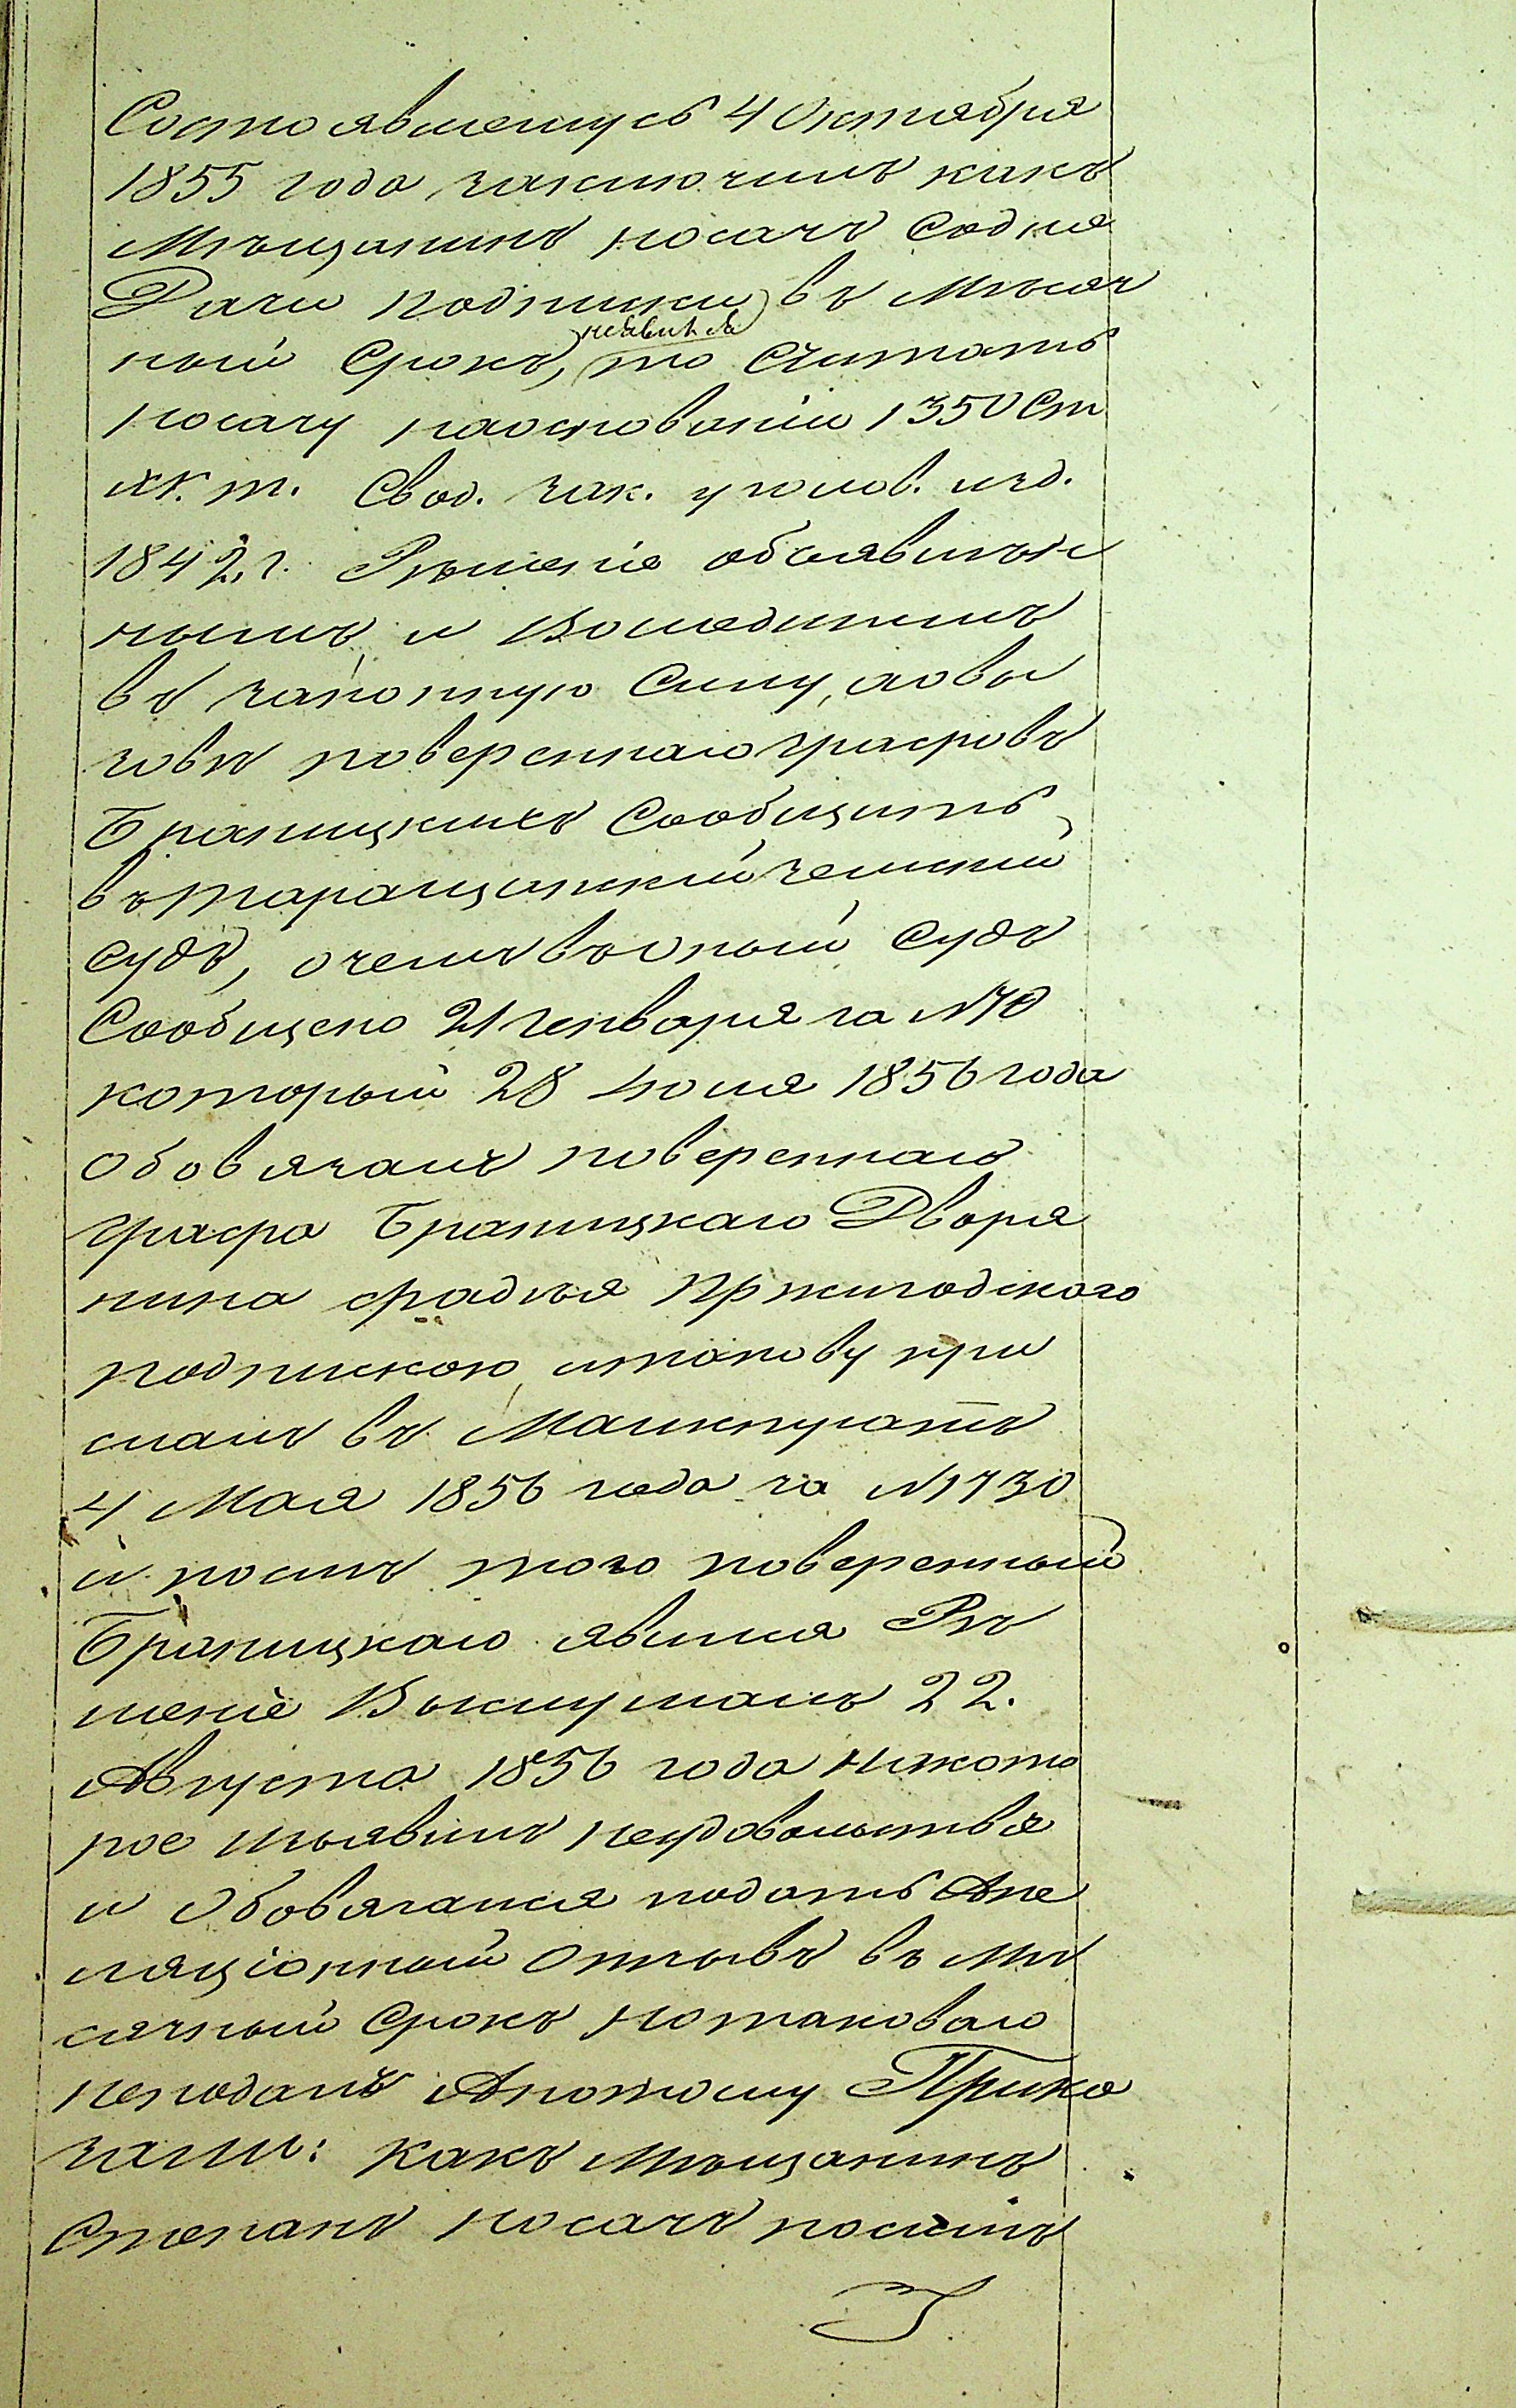 Состоявшемусь 4 Октября
1855 года заключилъ какъ
Мѣщанинъ Носачъ Содня
Дачи подписки въ Мѣсяч
ный Срокъ, неявился то Считать
Носачу наоснованіи 1350 Ст
XV. т. Свод. Зак. уголов. изд.
1842 г. Рѣшеніе объявлен
нымъ и Вошедшимъ
въ законную Силу, а о вы
зовѣ повереннаго Графовъ
Браницкихъ Сообщить
въ Таращанскій земскій
Судъ, о чемъ въ оный Судъ
Сообщено 21 Генваря за №70
который 28 Іюля 1856 года
Обовязалъ повереннаго
Графа Браницкаго Дворя
нина Фадѣя Пржигодского
подпискою, и такову при
слалъ въ Магистратъ
4 Мая 1856 года за №1730
и послѣ того поверенный
Браницкаго явился Рѣ
шеніе Выслушалъ 22.
Августа 1856 года Накото
рое изъявилъ неудовольствія
и Обовязался подать Апе
ляціонный Отзывъ въ Мѣ
сячный Срокъ Но таковаго
неподалъ А потому Прика
зали: Какъ Мѣщанинъ
Степанъ Носачъ послѣ